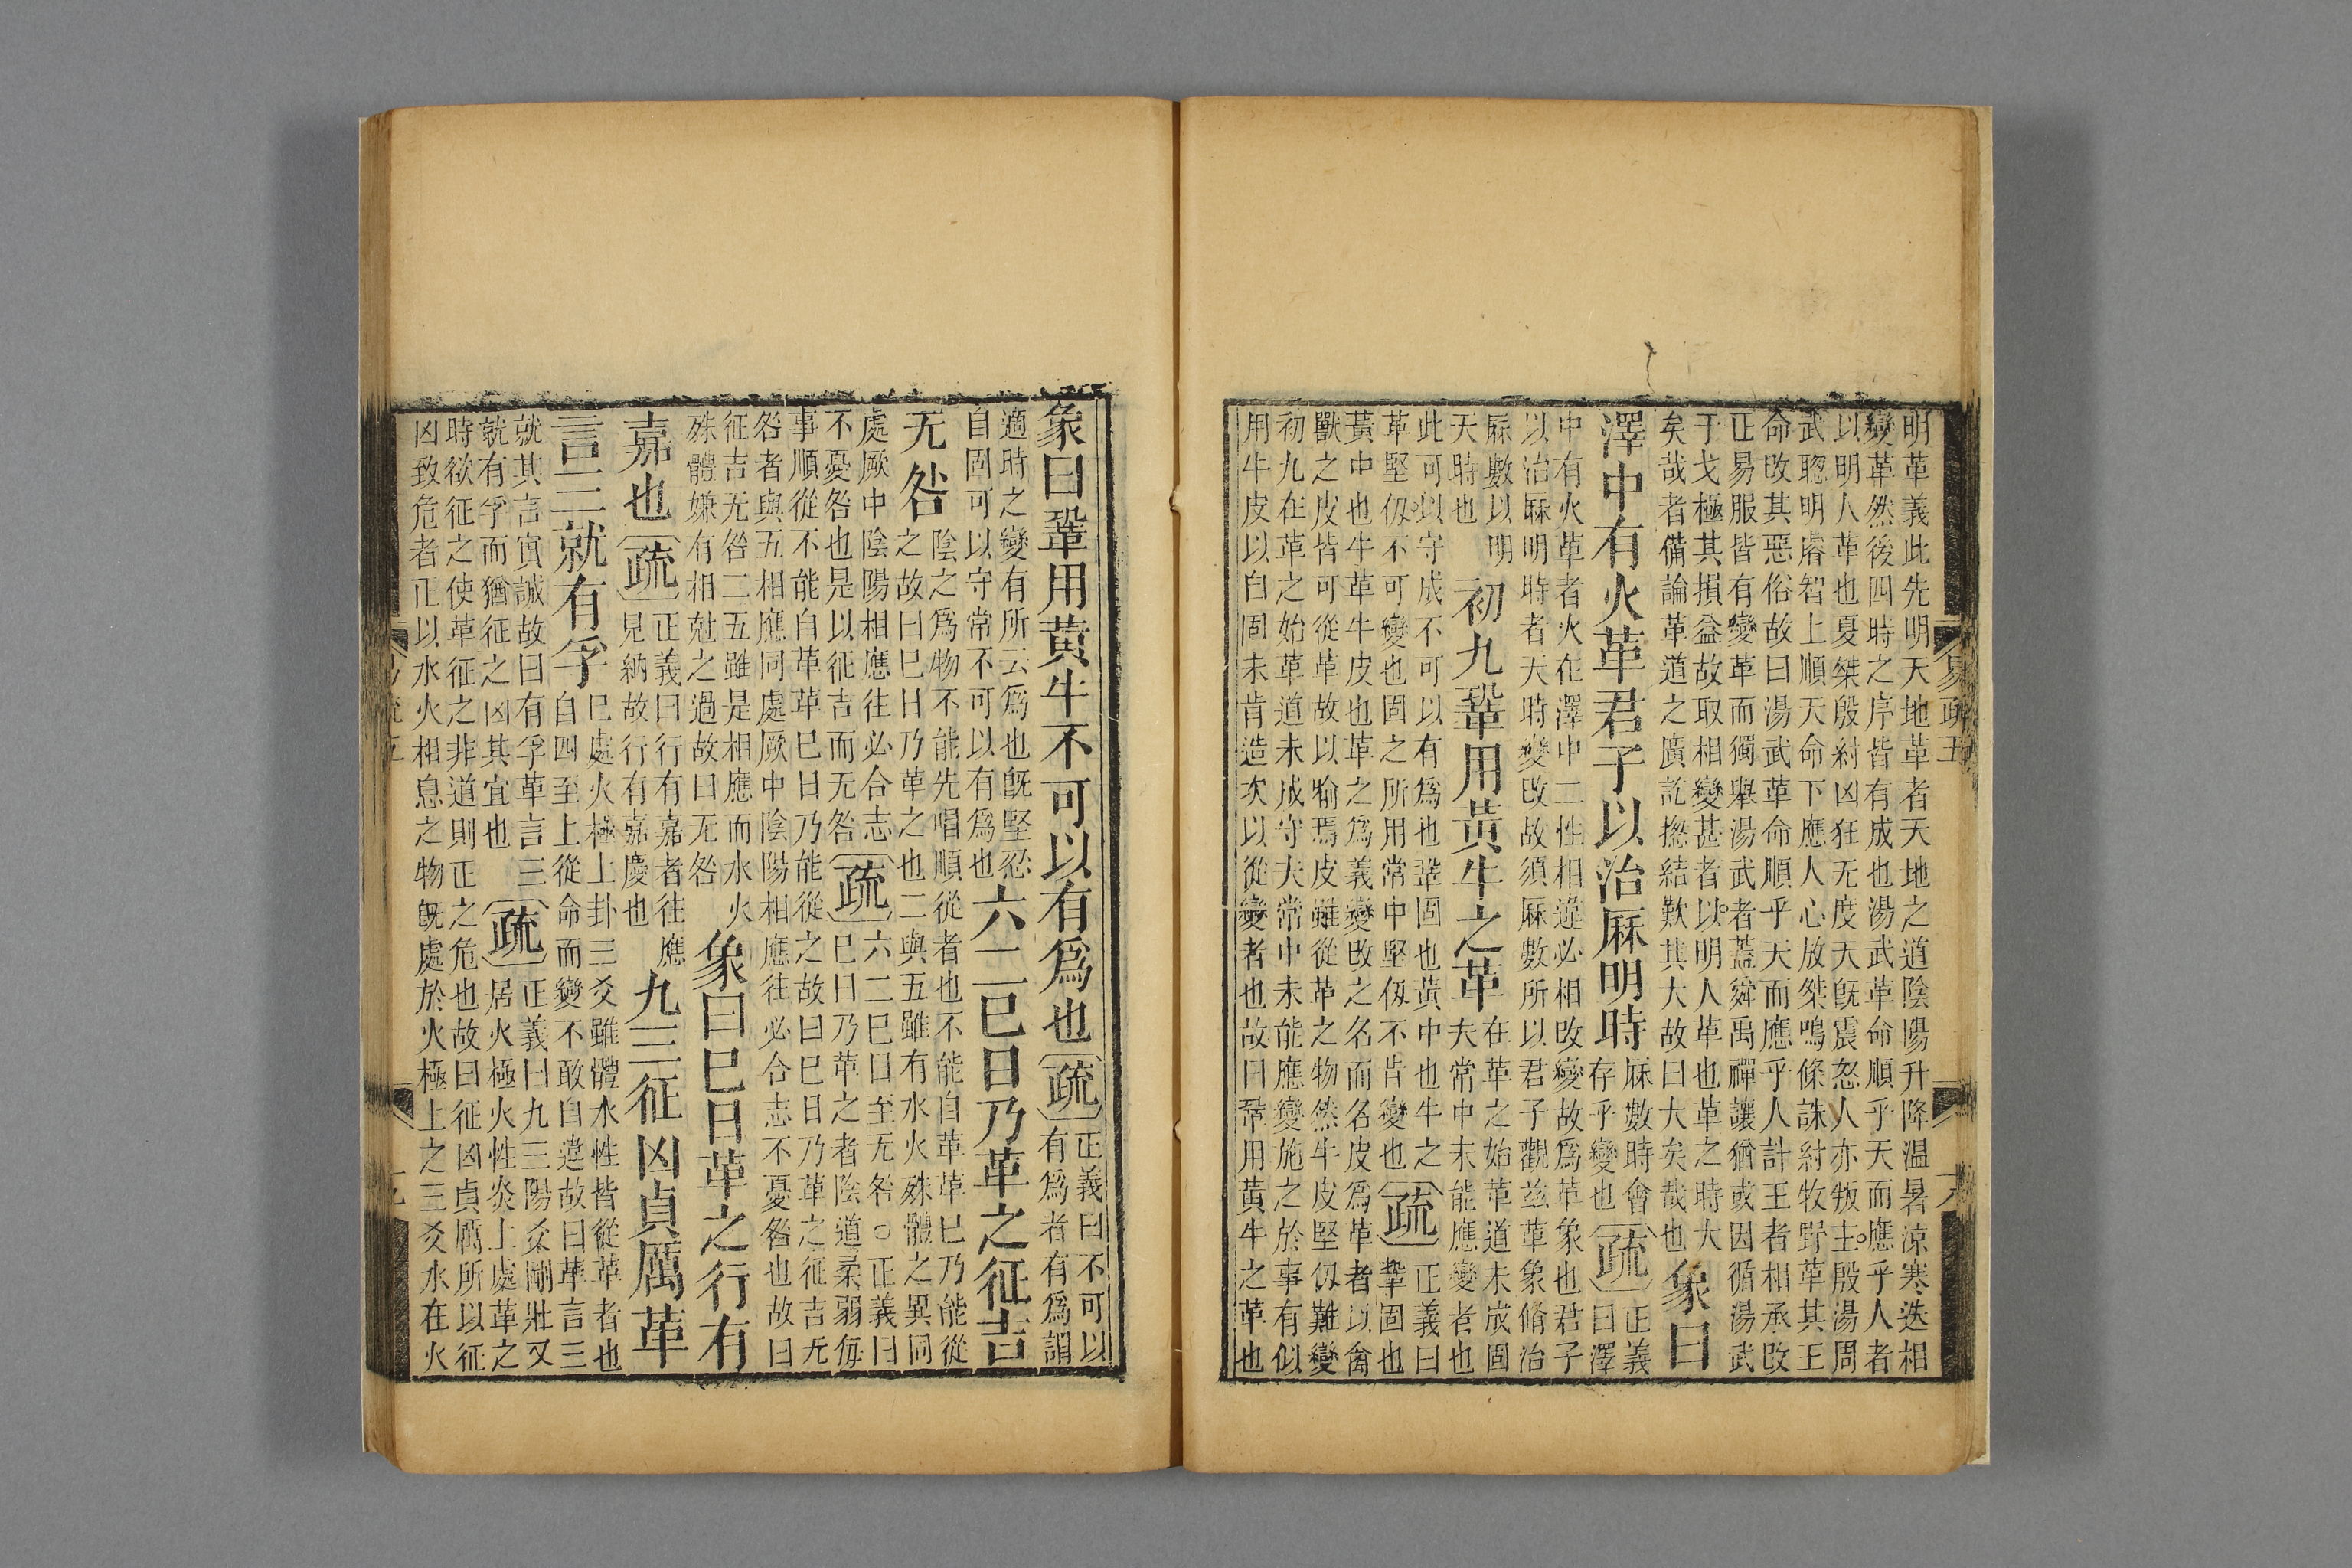 明革義此先明天地革者天地之道陰陽升降温暑涼寒迭相
變革然後四時之序皆有成也湯武革命順乎天而應乎人者
以明人革也夏桀殷紂凶狂无度天既震怒人亦叛主殷湯周
武聦明睿智上順天命下應人心放桀鳴條誅紂牧野革其王
命攺其惡俗故曰湯武革命順乎天而應乎人計王者相承攺
正易服皆有變革而獨舉湯武者蓋舜禹禪讓猶或因循湯武
于戈極其損益故取相變甚者以明人革也革之時大
矣哉者備論革道之廣訖揔結歎其大故曰大矣哉也
象曰
澤中有火革君子以治厤明時
厤數時會
存乎變也
疏
正義
曰澤
中有火革者火在澤中二性相違必相攺變故爲革象也君子
以治厤明時者天時變攺故須厤數所以君子觀兹革象脩治
厤數以明
天時也
初九鞏用黃牛之革
在革之始革道未成固
夫常中未能應變者也
此可以守成不可以有爲也鞏固也黃中也牛之
革堅仭不可變也固之所用常中堅仭不肯變也
疏
正義曰
鞏固也
黃中也牛革牛皮也革之爲義變攺之名而名皮爲革者以禽
獸之皮皆可從革故以喻焉皮雖從革之物然牛皮堅仭難變
初九在革之始革道未成守夫常中未能應變施之於事有似
用牛皮以自固未肯造次以從變者也故曰鞏用黃牛之革也
易疏五
象曰鞏用黃牛不可以有爲也
疏
正義曰不可以
有爲者有爲謂
適時之變有所云爲也既堅忍
自固可以守常不可以有爲也
六二巳日乃革之征吉
无咎
陰之爲物不能先唱順從者也不能自革革巳乃能從
之故曰巳日乃革之也二與五雖有水火殊體之異同
處厥中陰陽相應往必合志
不憂咎也是以征吉而无咎
疏
六二巳日至无咎○正義曰
巳日乃革之者陰道柔弱每
事順從不能自革革巳日乃能從之故曰巳日乃革之征吉无
咎者與五相應同處厥中陰陽相應往必合志不憂咎也故曰
征吉无咎二五雖是相應而水火
殊體嫌有相尅之過故曰无咎
象曰巳日革之行有
嘉也
疏
正義曰行有嘉者往應
見納故行有嘉慶也
九三征凶貞厲革
言三就有孚
巳處火極上卦三爻雖體水性皆從革者也
自四至上從命而變不敢自違故曰革言三
就其言實誠故曰有孚革言三
就有孚而猶征之凶其宜也
疏
正義曰九三陽爻剛壯又
居火極火性炎上處革之
時欲征之使革征之非道則正之危也故曰征凶貞厲所以征
凶致危者正以水火相息之物既處於火極上之三爻水在火